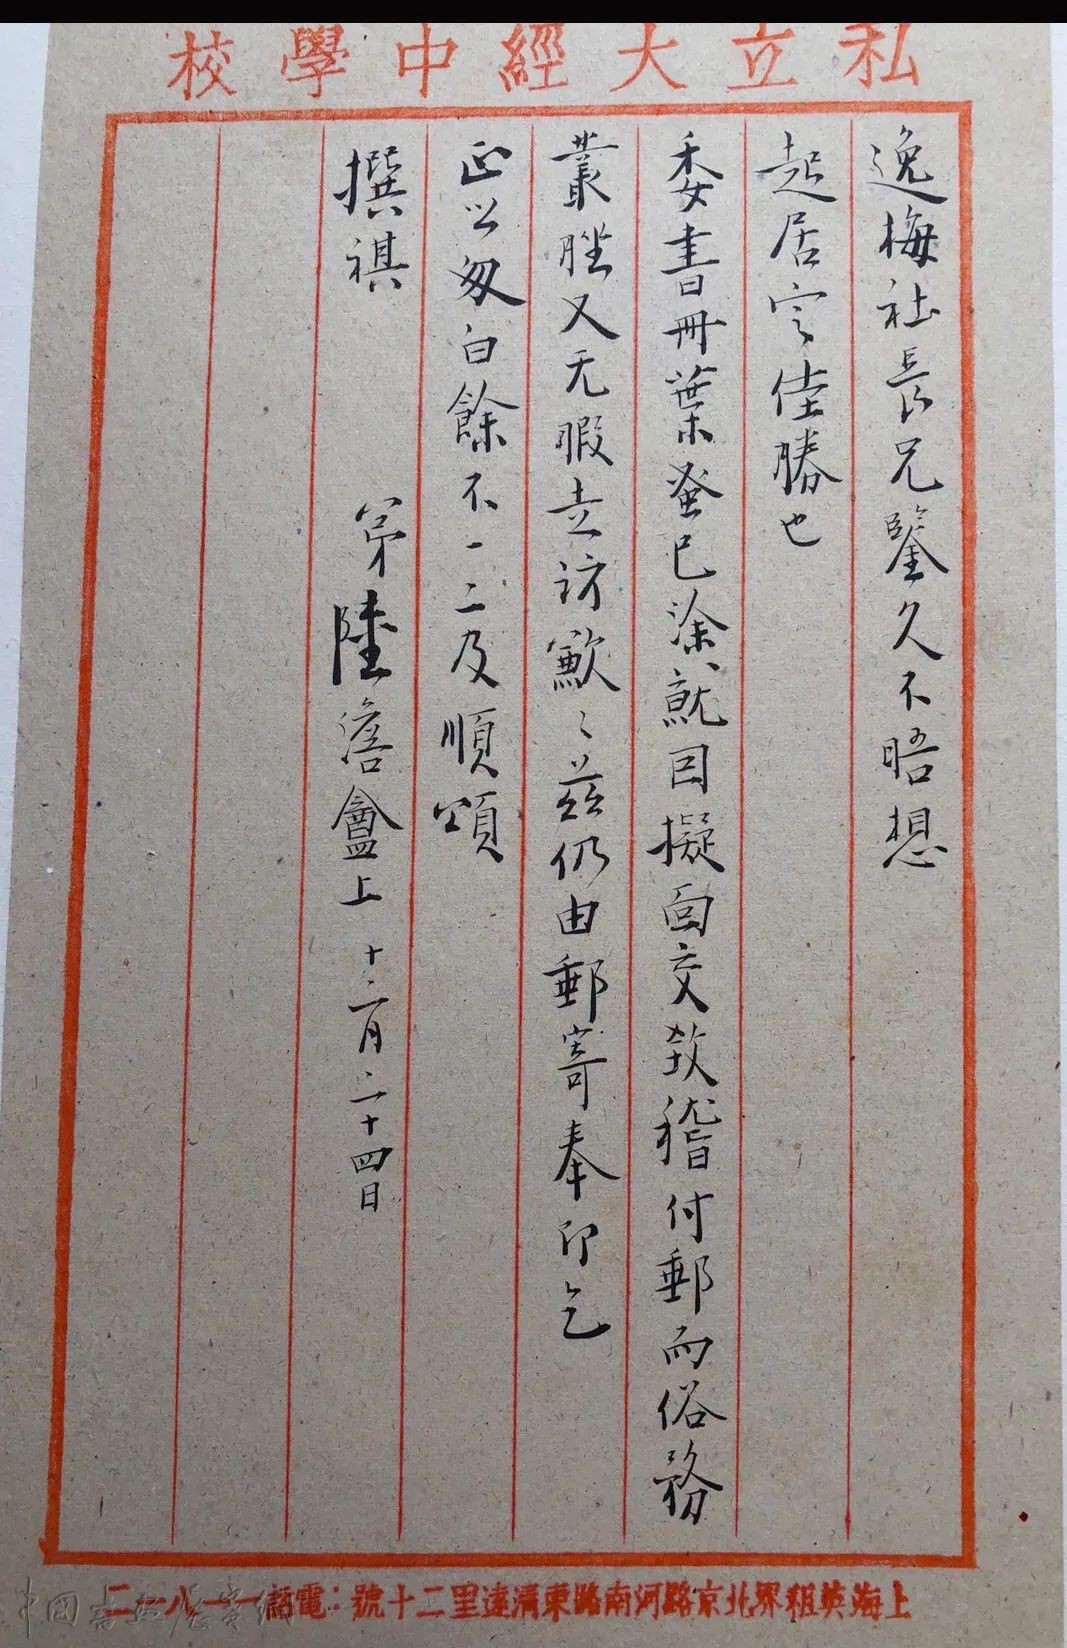 私立大經中學校
逸梅社長兄鑒久不晤想
起居定佳勝也
委書冊葉蚤已涂就因擬面交致稽付郵而俗務
叢脞又无暇走访歉〻茲仍由郵寄奉印乞
正以匆白餘不一二及順頌
撰祺
弟陸澹盦上 十二月二十四日
上海英租界北京路河南路東清遠里二十號：電話一一八一二